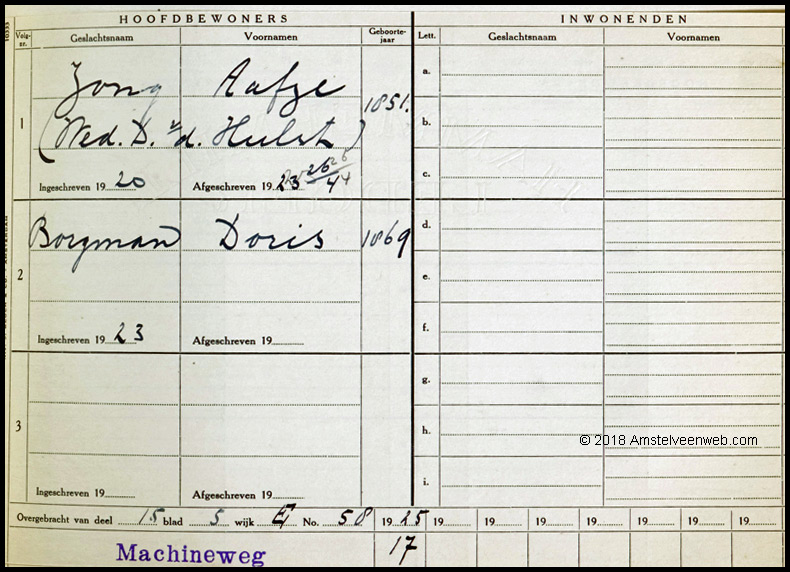 HOOFDBEWONERS INWONENDEN
Volg-nr. Geslachtsnaam Voornamen Geboorte-jaar Lett. Geslachtsnaam Voornamen
1 Jong Aafje 1851.
(Wed. D. v/d. Hulst)
Ingeschreven 1920 Afgeschreven 1923 26/4
a.
b.
c.
2 Borgman Doris 1869
Ingeschreven 1923 Afgeschreven 19
d.
e.
f.
3
Ingeschreven 19 Afgeschreven 19
g.
h.
i.
© 2018 Amstelveenweb.com
Overgebracht van deel 15 blad 5 wijk E No. 58 1925 19 19 19 19 19 19 19
Machineweg 17